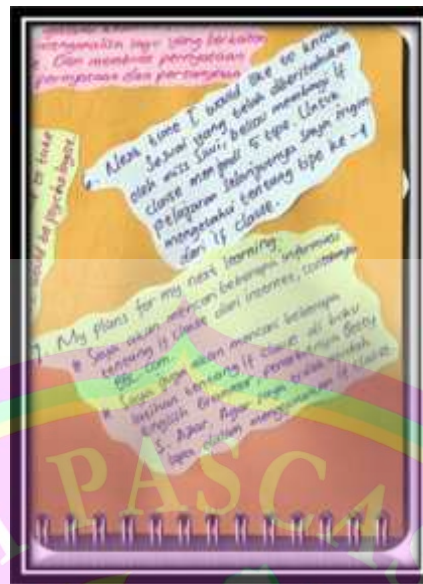 menganalisa lagu yang berkaitan
Dan membuat pernyataan
pernyataan dan persamaan
to take
would be psychologist
6. Next time I would like to know
Sesuai yang telah diberitahukan
oleh miss Suwi, beliau membagi if
clause menjadi 5 tipe. Untuk
pelajaran selanjutnya saya ingin
mengetahui tentang tipe ke-4
dari if clause.
7. My plans for my next learning
Saya akan mencari beberapa informasi
tentang if clause dari internet, contohnya
BBC.com.
Saya juga akan mencari beberapa
latihan tentang if clause di buku
English Grammar, Betty
S. Azar. Agar saya tidak mudah
lupa dalam menggunakan if clause.
PASCA